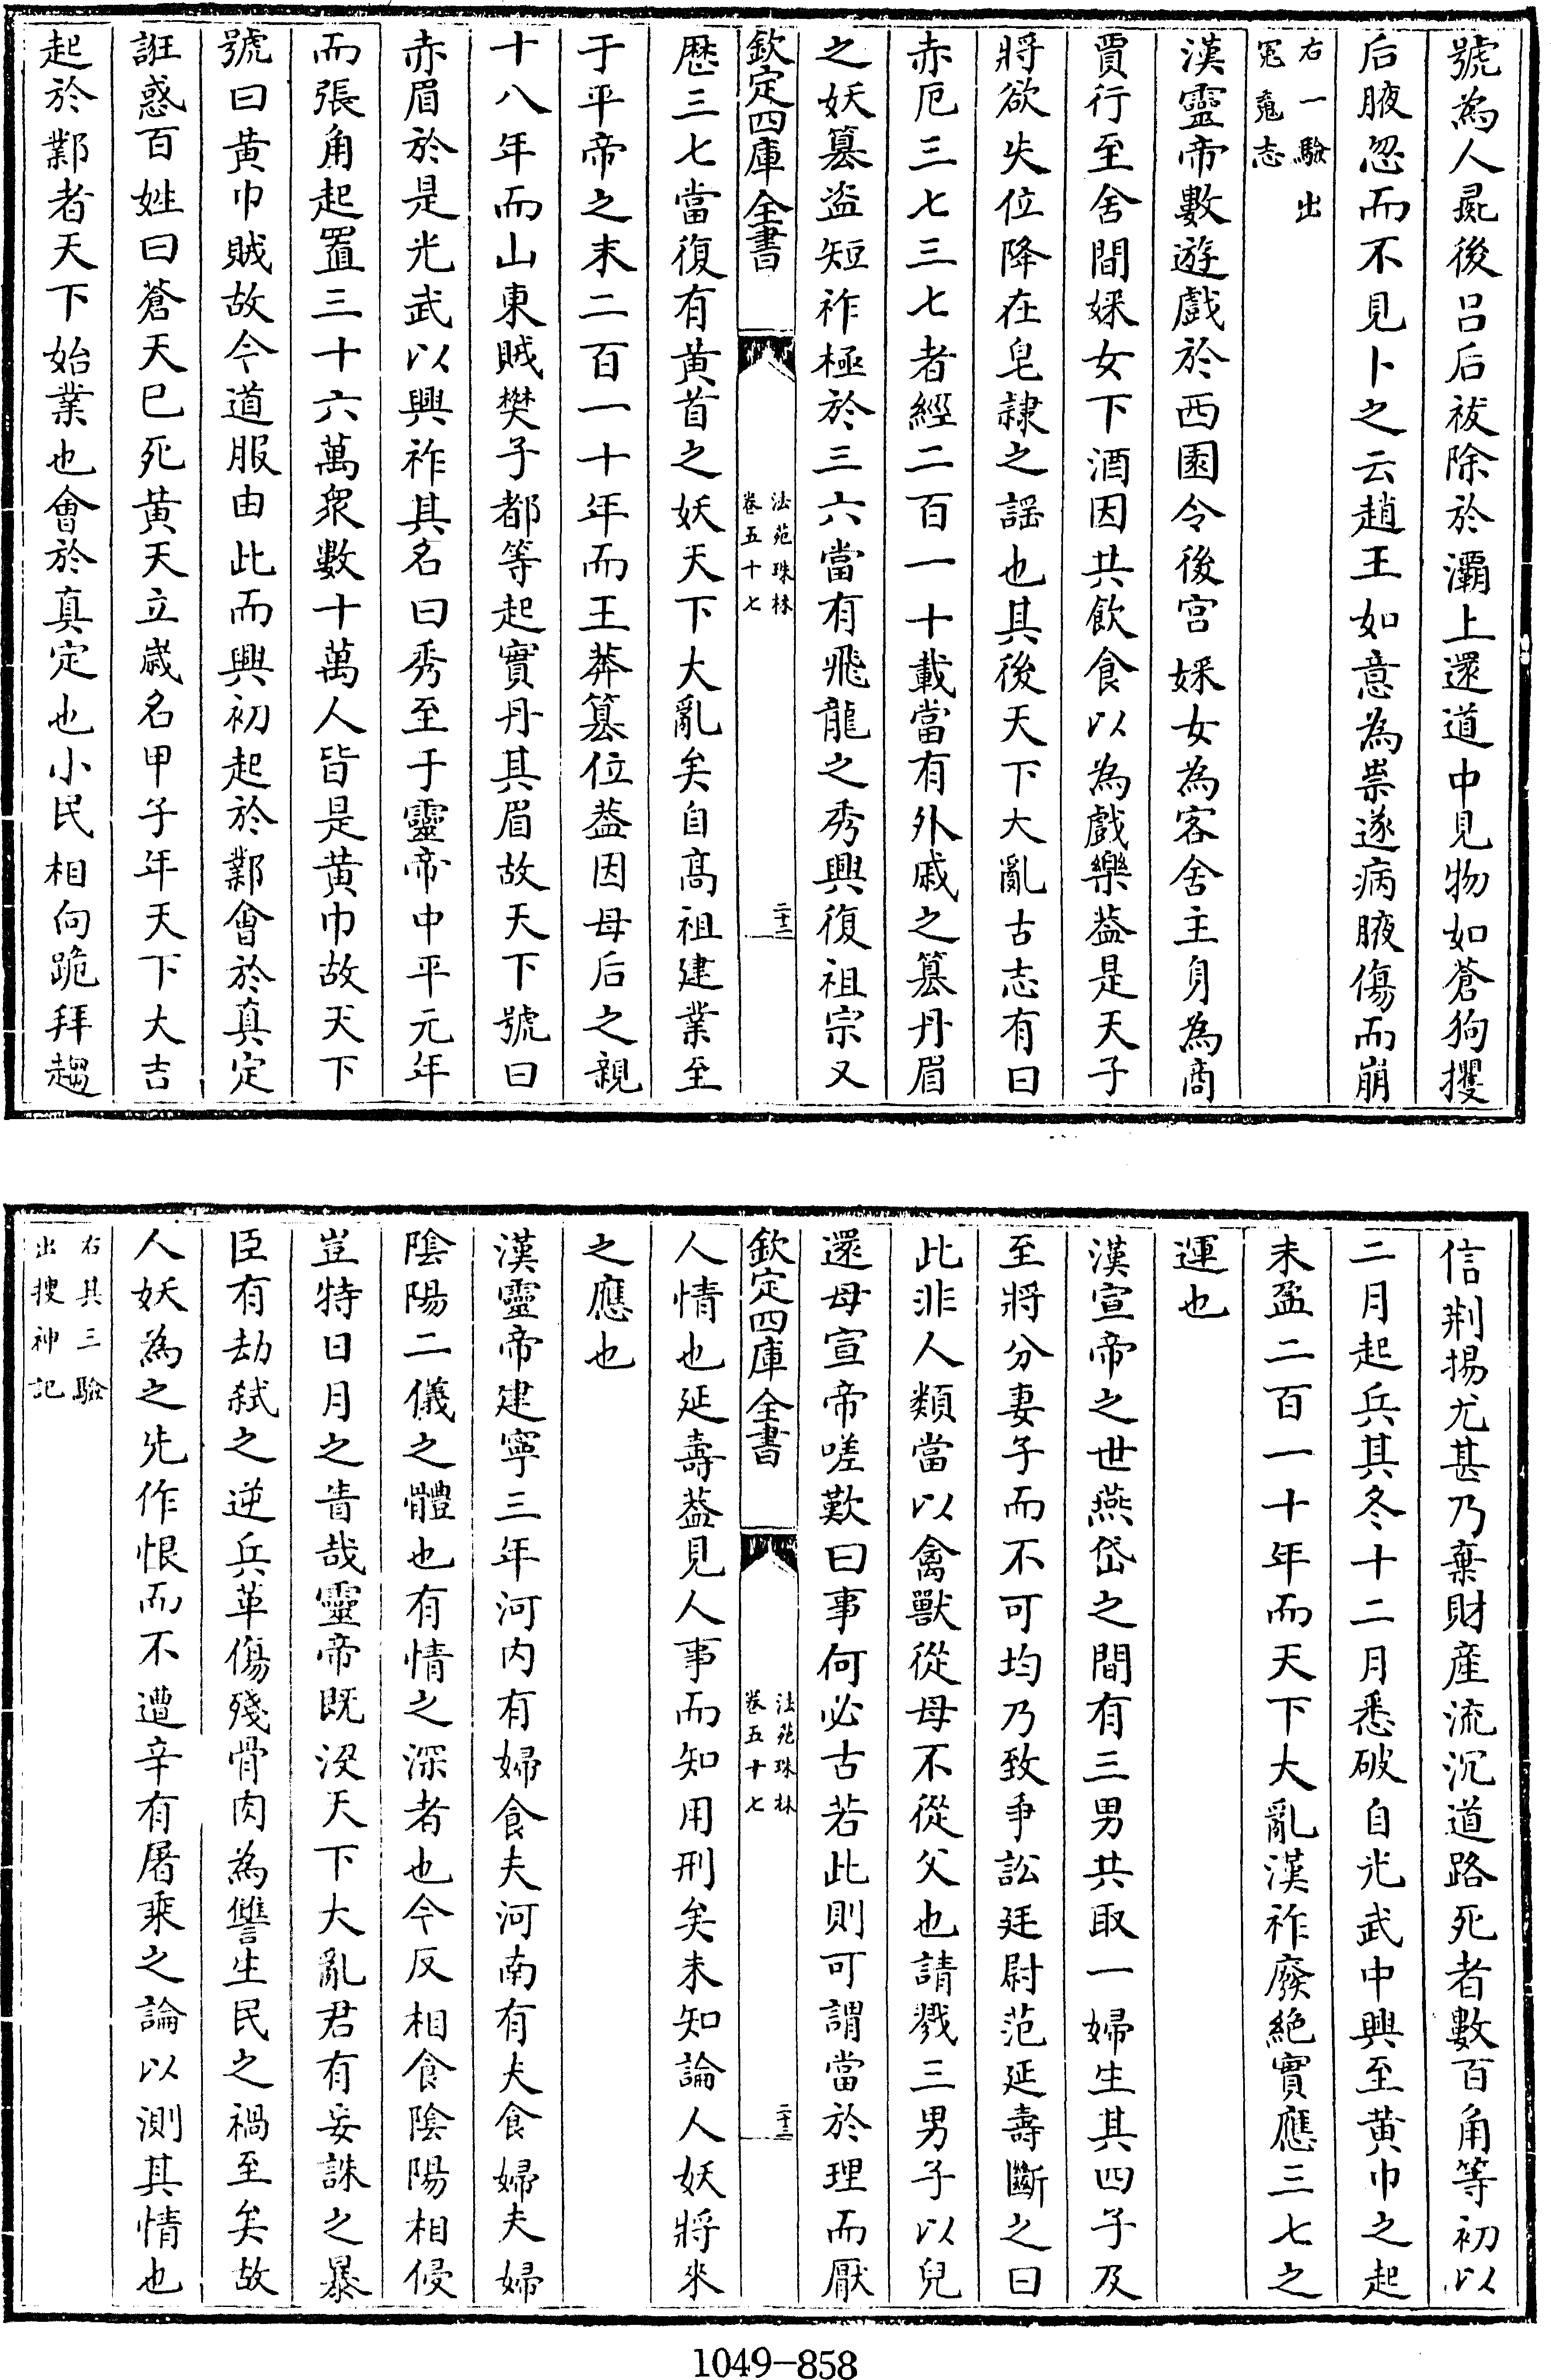 號為人彘後呂后祓除於灞上還道中見物如蒼狗攫
后腋忽而不見卜之云趙王如意為祟遂病腋傷而崩
右一驗出
冤魂志
漢靈帝數遊戲於西園令後宫婇女為客舍主身為商
賈行至舍間婇女下酒因共飲食以為戲樂葢是天子
將欲失位降在皂隷之謡也其後天下大亂古志有曰
赤厄三七三七者經二百一十載當有外戚之簒丹眉
之妖簒盗短祚極於三六當有飛龍之秀興復祖宗又
欽定四庫全書
法苑珠林
卷五十七
二十二
歴三七當復有黄首之妖天下大亂矣自髙祖建業至
于平帝之末二百一十年而王莽簒位葢因母后之親
十八年而山東賊樊子都等起實丹其眉故天下號曰
赤眉於是光武以興祚其名曰秀至于靈帝中平元年
而張角起置三十六萬衆數十萬人皆是黄巾故天下
號曰黄巾賊故今道服由此而興初起於鄴會於真定
誑惑百姓曰蒼天已死黄天立歳名甲子年天下大吉
起於鄴者天下始業也會於真定也小民相向跪拜趨
信荆揚尤甚乃棄財産流沉道路死者數百角等初以
二月起兵其冬十二月悉破自光武中興至黄巾之起
未盈二百一十年而天下大亂漢祚廢絶實應三七之
運也
漢宣帝之世燕岱之間有三男共取一婦生其四子及
至將分妻子而不可均乃致爭訟廷尉范延壽斷之曰
此非人類當以禽獸從母不從父也請戮三男子以兒
還母宣帝嗟歎曰事何必古若此則可謂當於理而厭
欽定四庫全書
法苑珠林
卷五十七
二十三
人情也延壽葢見人事而知用刑矣未知論人妖將來
之應也
漢靈帝建寧三年河内有婦食夫河南有夫食婦夫婦
隂陽二儀之體也有情之深者也今反相食隂陽相侵
豈特日月之眚哉靈帝既沒天下大亂君有妄誅之暴
臣有劫弑之逆兵革傷殘骨肉為讐生民之禍至矣故
人妖為之先作恨而不遭辛有屠乘之論以測其情也
右其三驗
出搜神記
1049-858